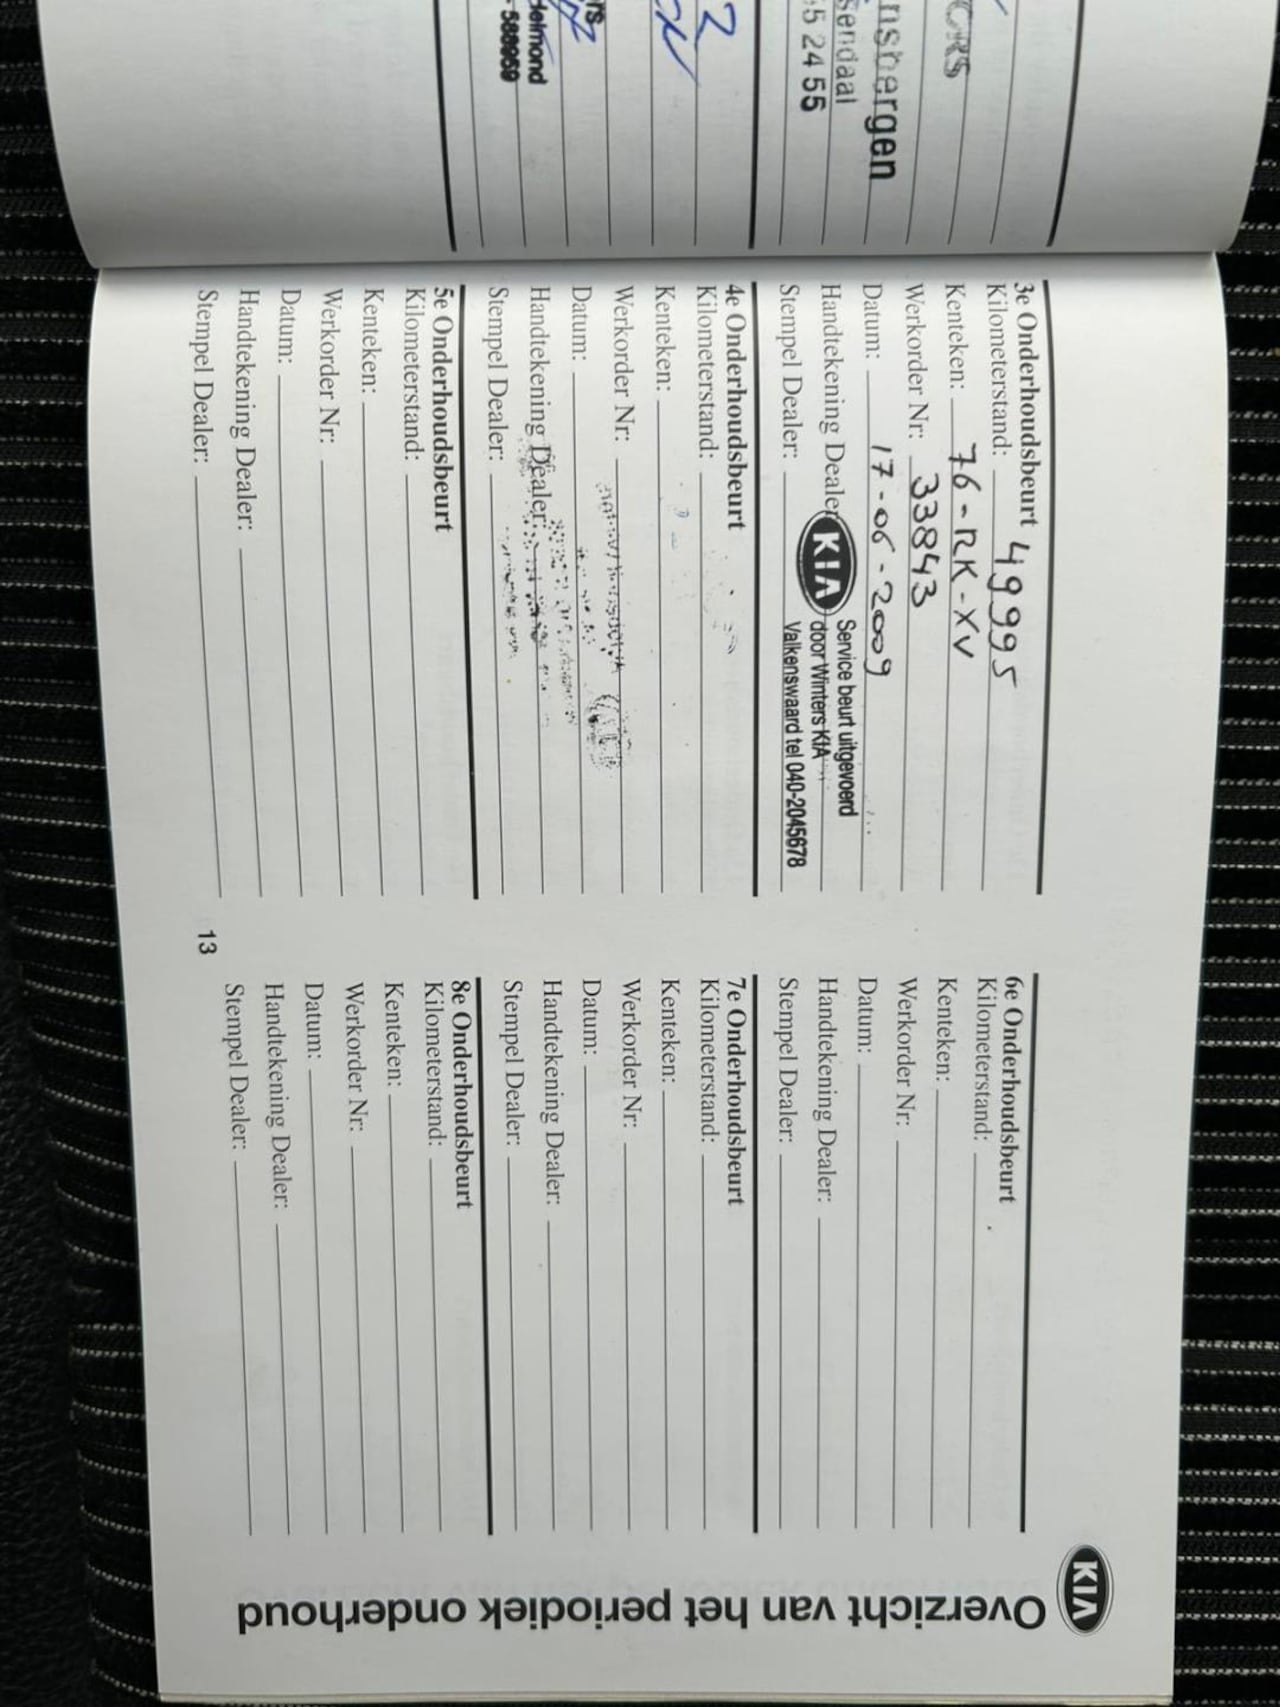 CRS
nsbergen
sendaal
5 24 55
2
rs
delmond
588959
3e Onderhoudsbeurt
Kilometerstand: 49995
Kenteken: 76-RK-XV
Werkorder Nr: 33843
Datum: 17-06-2009
Handtekening Dealer:
Stempel Dealer:
KIA
Service beurt uitgevoerd
door Winters KIA
Valkenswaard tel 040-2045678
4e Onderhoudsbeurt
Kilometerstand:
Kenteken:
Werkorder Nr:
Datum:
Handtekening Dealer:
Stempel Dealer:
5e Onderhoudsbeurt
Kilometerstand:
Kenteken:
Werkorder Nr:
Datum:
Handtekening Dealer:
Stempel Dealer:
13
6e Onderhoudsbeurt
Kilometerstand:
Kenteken:
Werkorder Nr:
Datum:
Handtekening Dealer:
Stempel Dealer:
7e Onderhoudsbeurt
Kilometerstand:
Kenteken:
Werkorder Nr:
Datum:
Handtekening Dealer:
Stempel Dealer:
8e Onderhoudsbeurt
Kilometerstand:
Kenteken:
Werkorder Nr:
Datum:
Handtekening Dealer:
Stempel Dealer:
KIA
Overzicht van het periodiek onderhoud